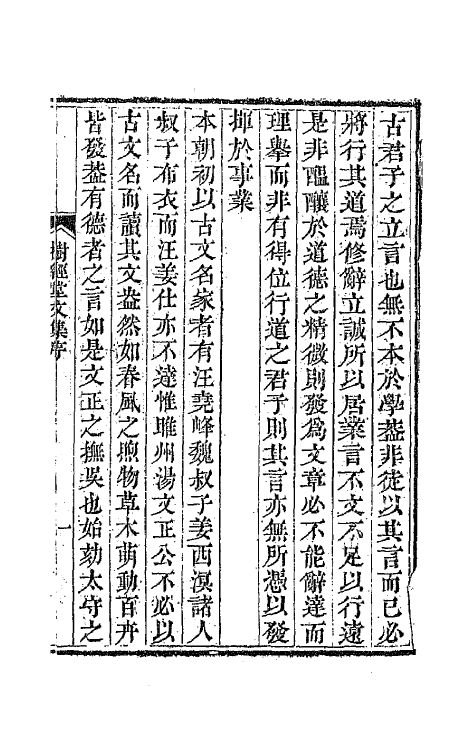 古君子之立言也無不本於學葢非徒以其言而已必
將行其道焉修辭立誠所以居業言不文不足以行遠
是非醞釀於道德之精微則發爲文章必不能辭達而
理舉而非有得位行道之君子則其言亦無所憑以發
揮於事業
本朝初以古文名家者有汪堯峰魏叔子姜西溟諸人
叔子布衣而汪姜仕亦不達惟睢州湯文正公不必以
古文名而讀其文盎然如春風之煦物草木萌動百卉
皆發葢有德者之言如是文正之撫吳也始劾太守之
樹經堂文集序
一